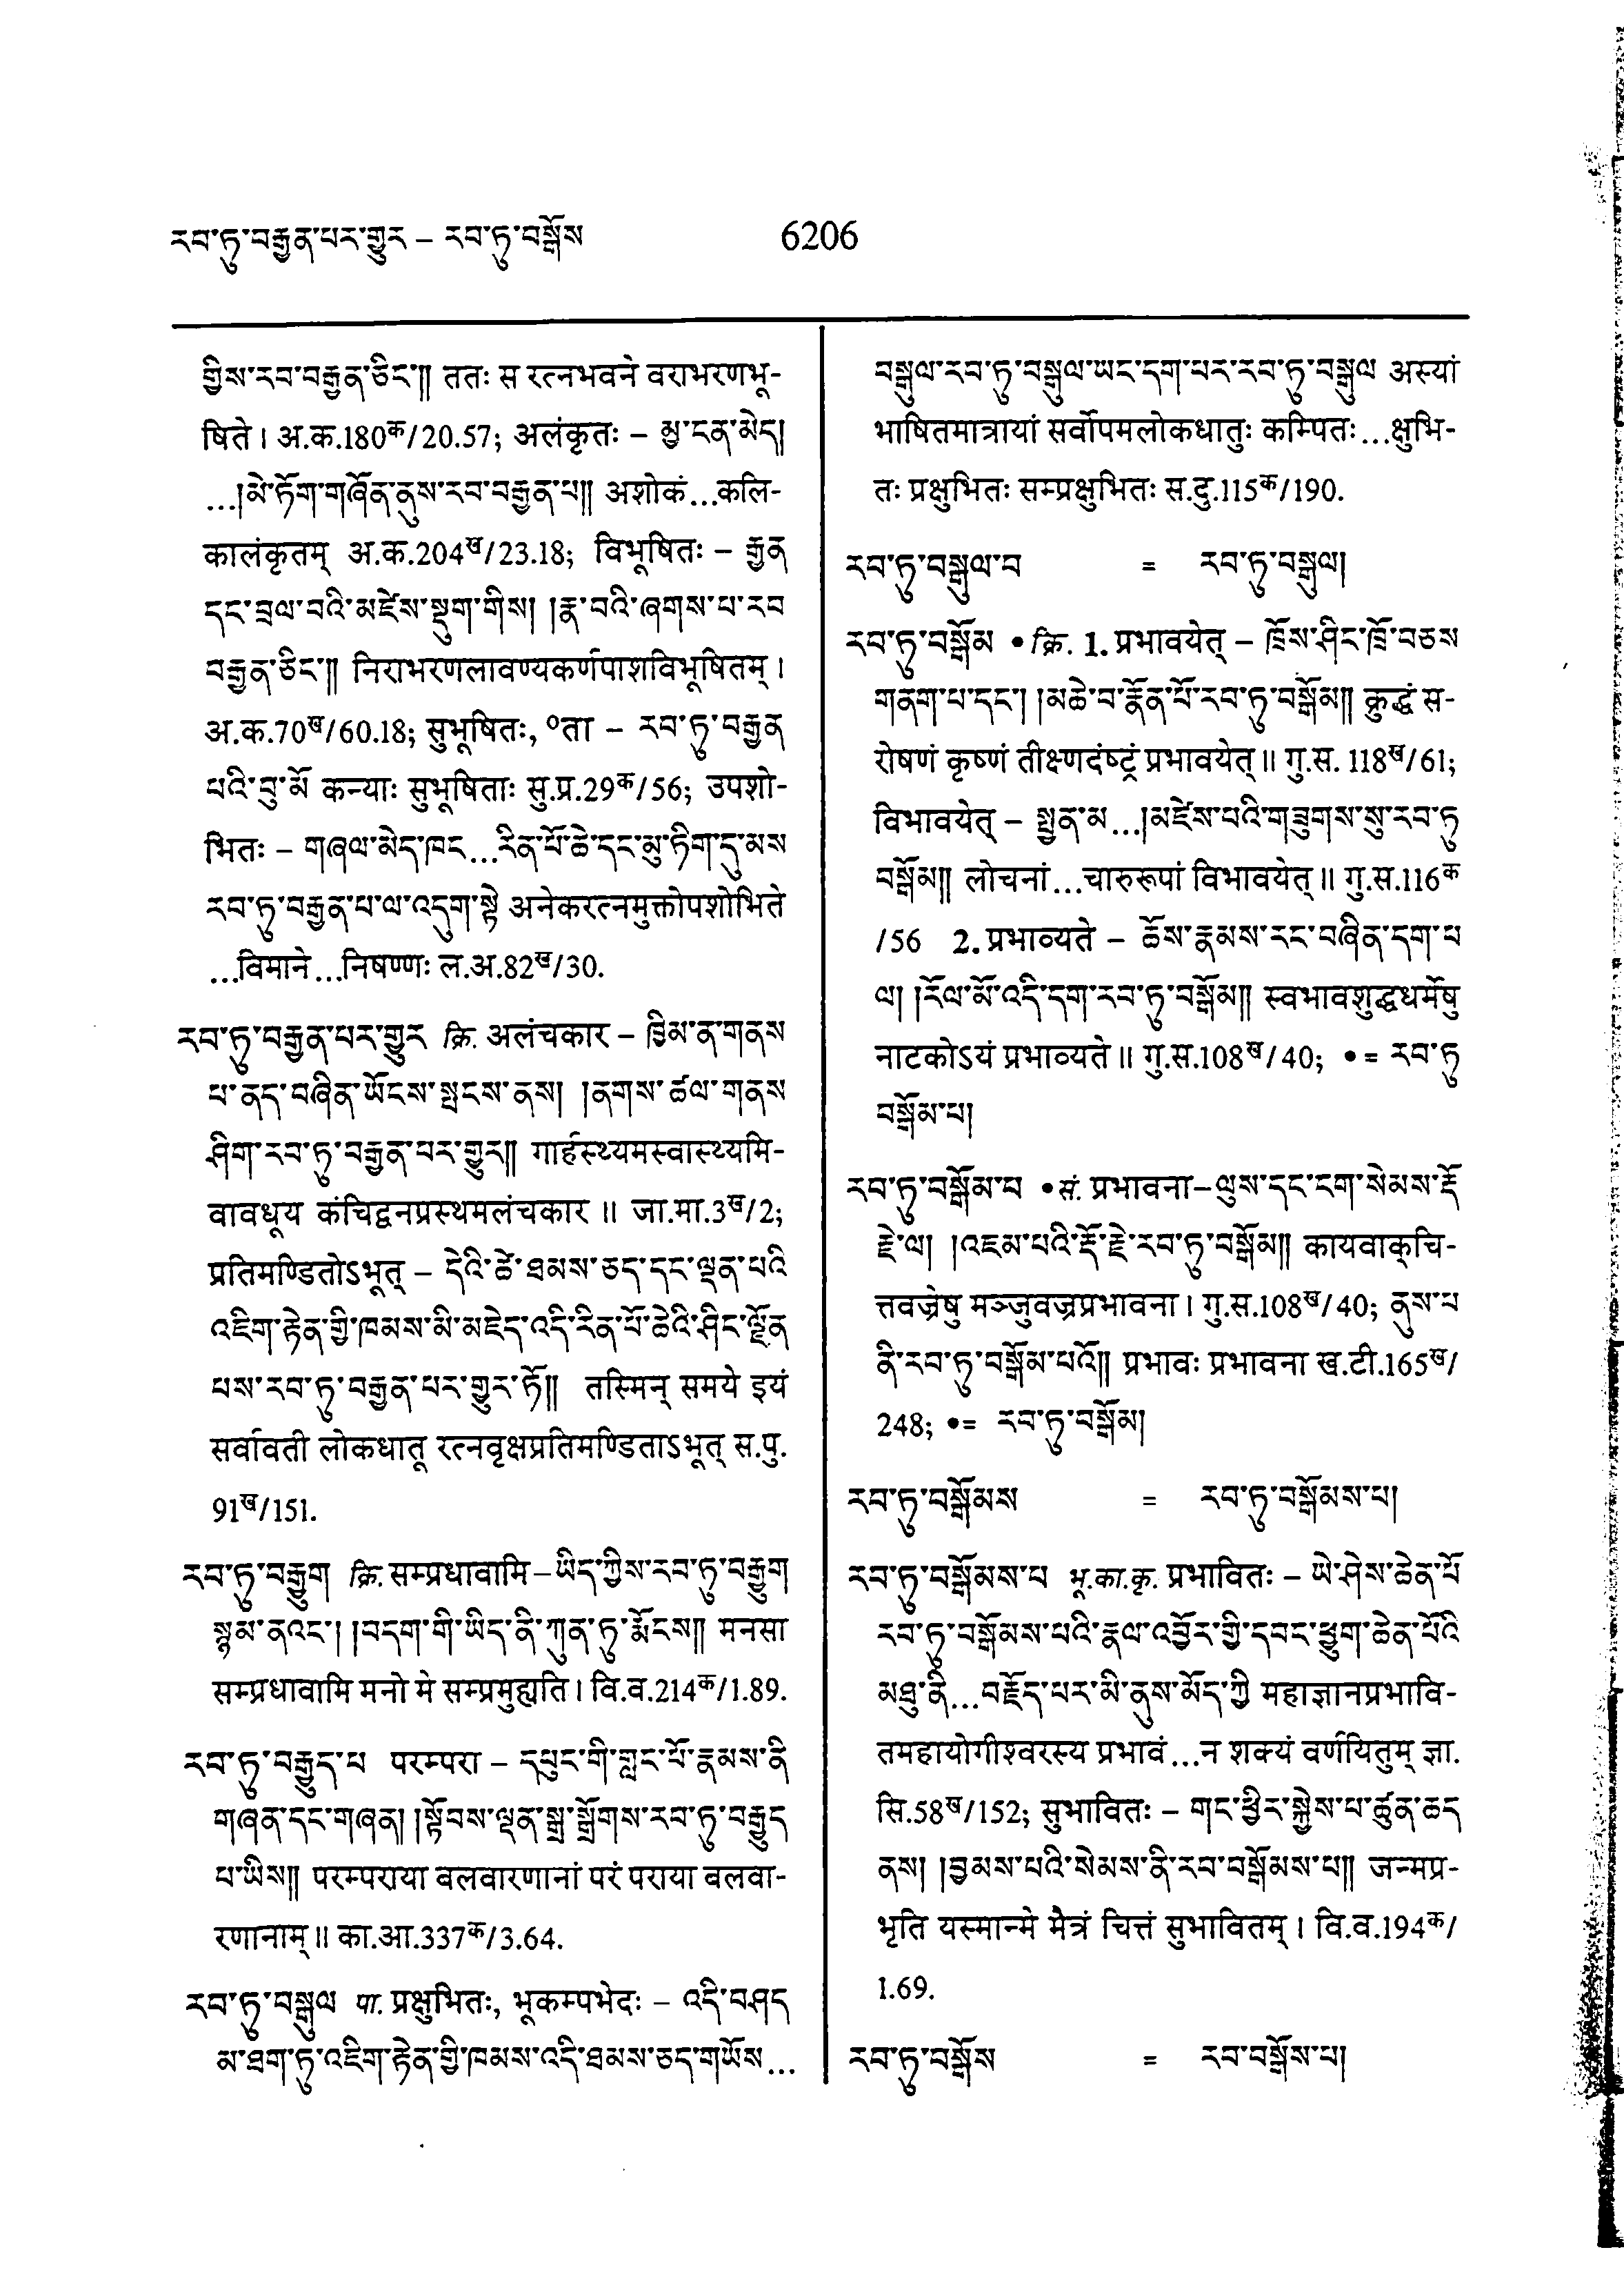 རབ་ཏུ་བརྒྱན་པར་གྱུར – རབ་ཏུ་བསྒོས
6206
གྱིས་རབ་བརྒྱན་ཅིང་༎ ततः स रत्नभवने वराभरणभू-
षिते । अ.क.180क/20.57; अलंकृतः – མྱ་ངན་མེད།
...།མེ་ཏོག་གཞོན་ནུས་རབ་བརྒྱན་པ༎ अशोकं...कलि-
कालंकृतम् अ.क.204ख/23.18; विभूषितः – རྒྱན
དང་བྲལ་བའི་མཛེས་སྡུག་གིས། །རྣ་བའི་ཞགས་པ་རབ
བརྒྱན་ཅིང་༎ निराभरणलावण्यकर्णपाशविभूषितम् ।
अ.क.70ख/60.18; सुभूषितः, ०ता – རབ་ཏུ་བརྒྱན
པའི་བུ་མོ कन्याः सुभूषिताः सु.प्र.29क/56; उपशो-
भितः – གཞལ་མེད་ཁང...རིན་པོ་ཆེ་དང་མུ་ཏིག་དུ་མས
རབ་ཏུ་བརྒྱན་པ་ལ་འདུག་སྟེ अनेकरत्नमुक्तोपशोभिते
...विमाने...निषण्णः ल.अ.82ख/30.
རབ་ཏུ་བརྒྱན་པར་གྱུར क्रि. अलंचकार – ཁྱིམ་ན་གནས
པ་ནད་བཞིན་ཡོངས་སྤངས་ནས། །ནགས་ཚལ་གནས
ཤིག་རབ་ཏུ་བརྒྱན་པར་གྱུར༎ गार्हस्थ्यमस्वास्थ्यमि-
वावधूय कंचिद्वनप्रस्थमलंचकार ॥ जा.मा.3ख/2;
प्रतिमण्डितोऽभूत् – དེའི་ཚེ་ཐམས་ཅད་དང་ལྡན་པའི
འཇིག་རྟེན་གྱི་ཁམས་མི་མཇེད་འདི་རིན་པོ་ཆེའི་ཤིང་ལྗོན
པས་རབ་ཏུ་བརྒྱན་པར་གྱུར་ཏོ༎ तस्मिन् समये इयं
सर्वावती लोकधातू रत्नवृक्षप्रतिमण्डिताऽभूत् स.पु.
91ख/151.
རབ་ཏུ་བརྒྱུག क्रि. सम्प्रधावामि – ཡིད་ཀྱིས་རབ་ཏུ་བརྒྱུག
སྙམ་ནའང་། །བདག་གི་ཡིད་ནི་ཀུན་ཏུ་རྨོངས༎ मनसा
सम्प्रधावामि मनो मे सम्प्रमुह्यति । वि.व.214क/1.89.
རབ་ཏུ་བརྒྱུད་པ परम्परा – དཔུང་གི་གླང་པོ་རྣམས་ནི
གཞན་དང་གཞན། །སྟོབས་ལྡན་སྒྲ་སྒྲོགས་རབ་ཏུ་བརྒྱུད
པ་ཡིས༎ परम्पराया बलवारणानां परं पराया बलवा-
रणानाम् ॥ का.आ.337क/3.64.
རབ་ཏུ་བསྒུལ पा. प्रक्षुभितः, भूकम्पभेदः – འདི་བཤད
མ་ཐག་ཏུ་འཇིག་རྟེན་གྱི་ཁམས་འདི་ཐམས་ཅད་གཡོས...
བསྒུལ་རབ་ཏུ་བསྒུལ་ཡང་དག་པར་རབ་ཏུ་བསྒུལ अस्यां
भाषितमात्रायां सर्वोपमलोकधातुः कम्पितः...क्षुभि-
तः प्रक्षुभितः सम्प्रक्षुभितः स.दु.115क/190.
རབ་ཏུ་བསྒུལ་བ = རབ་ཏུ་བསྒུལ།
རབ་ཏུ་བསྒོམ • क्रि. 1. प्रभावयेत् – ཁྲོས་ཤིང་ཁྲོ་བཅས
གནག་པ་དང་། །མཆེ་བ་རྣོན་པོ་རབ་ཏུ་བསྒོམ༎ क्रुद्धं स-
रोषणं कृष्णं तीक्ष्णदंष्ट्रं प्रभावयेत् ॥ गु.स. 118ख/61;
विभावयेत् – སྤྱན་མ...།མཛེས་པའི་གཟུགས་སུ་རབ་ཏུ
བསྒོམ༎ लोचनां...चारुरूपां विभावयेत् ॥ गु.स.116क
/56 2. प्रभाव्यते – ཆོས་རྣམས་རང་བཞིན་དག་པ
ལ། །རོལ་མོ་འདི་དག་རབ་ཏུ་བསྒོམ༎ स्वभावशुद्धधर्मेषु
नाटकोऽयं प्रभाव्यते ॥ गु.स.108ख/40; • = རབ་ཏུ
བསྒོམ་པ།
རབ་ཏུ་བསྒོམ་པ • सं. प्रभावना – ལུས་དང་ངག་སེམས་རྡོ
རྗེ་ལ། །འཇམ་པའི་རྡོ་རྗེ་རབ་ཏུ་བསྒོམ༎ कायवाक्चि-
त्तवज्रेषु मञ्जुवज्रप्रभावना । गु.स.108ख/40; ནུས་པ
ནི་རབ་ཏུ་བསྒོམ་པའོ༎ प्रभावः प्रभावना ख.टी.165ख/
248; • = རབ་ཏུ་བསྒོམ།
རབ་ཏུ་བསྒོམས = རབ་ཏུ་བསྒོམས་པ།
རབ་ཏུ་བསྒོམས་པ भू.का.कृ. प्रभावितः – ཡེ་ཤེས་ཆེན་པོ
རབ་ཏུ་བསྒོམས་པའི་རྣལ་འབྱོར་གྱི་དབང་ཕྱུག་ཆེན་པོའི
མཐུ་ནི...བརྗོད་པར་མི་ནུས་མོད་ཀྱི महाज्ञानप्रभावि-
तमहायोगीश्वरस्य प्रभावं...न शक्यं वर्णयितुम् ज्ञा.
सि.58ख/152; सुभावितः – གང་ཕྱིར་སྐྱེས་པ་ཚུན་ཆད
ནས། །བྱམས་པའི་སེམས་ནི་རབ་བསྒོམས་པ༎ जन्मप्र-
भृति यस्मान्मे मैत्रं चित्तं सुभावितम् । वि.व.194क/
1.69.
རབ་ཏུ་བསྒོས = རབ་བསྒོས་པ།